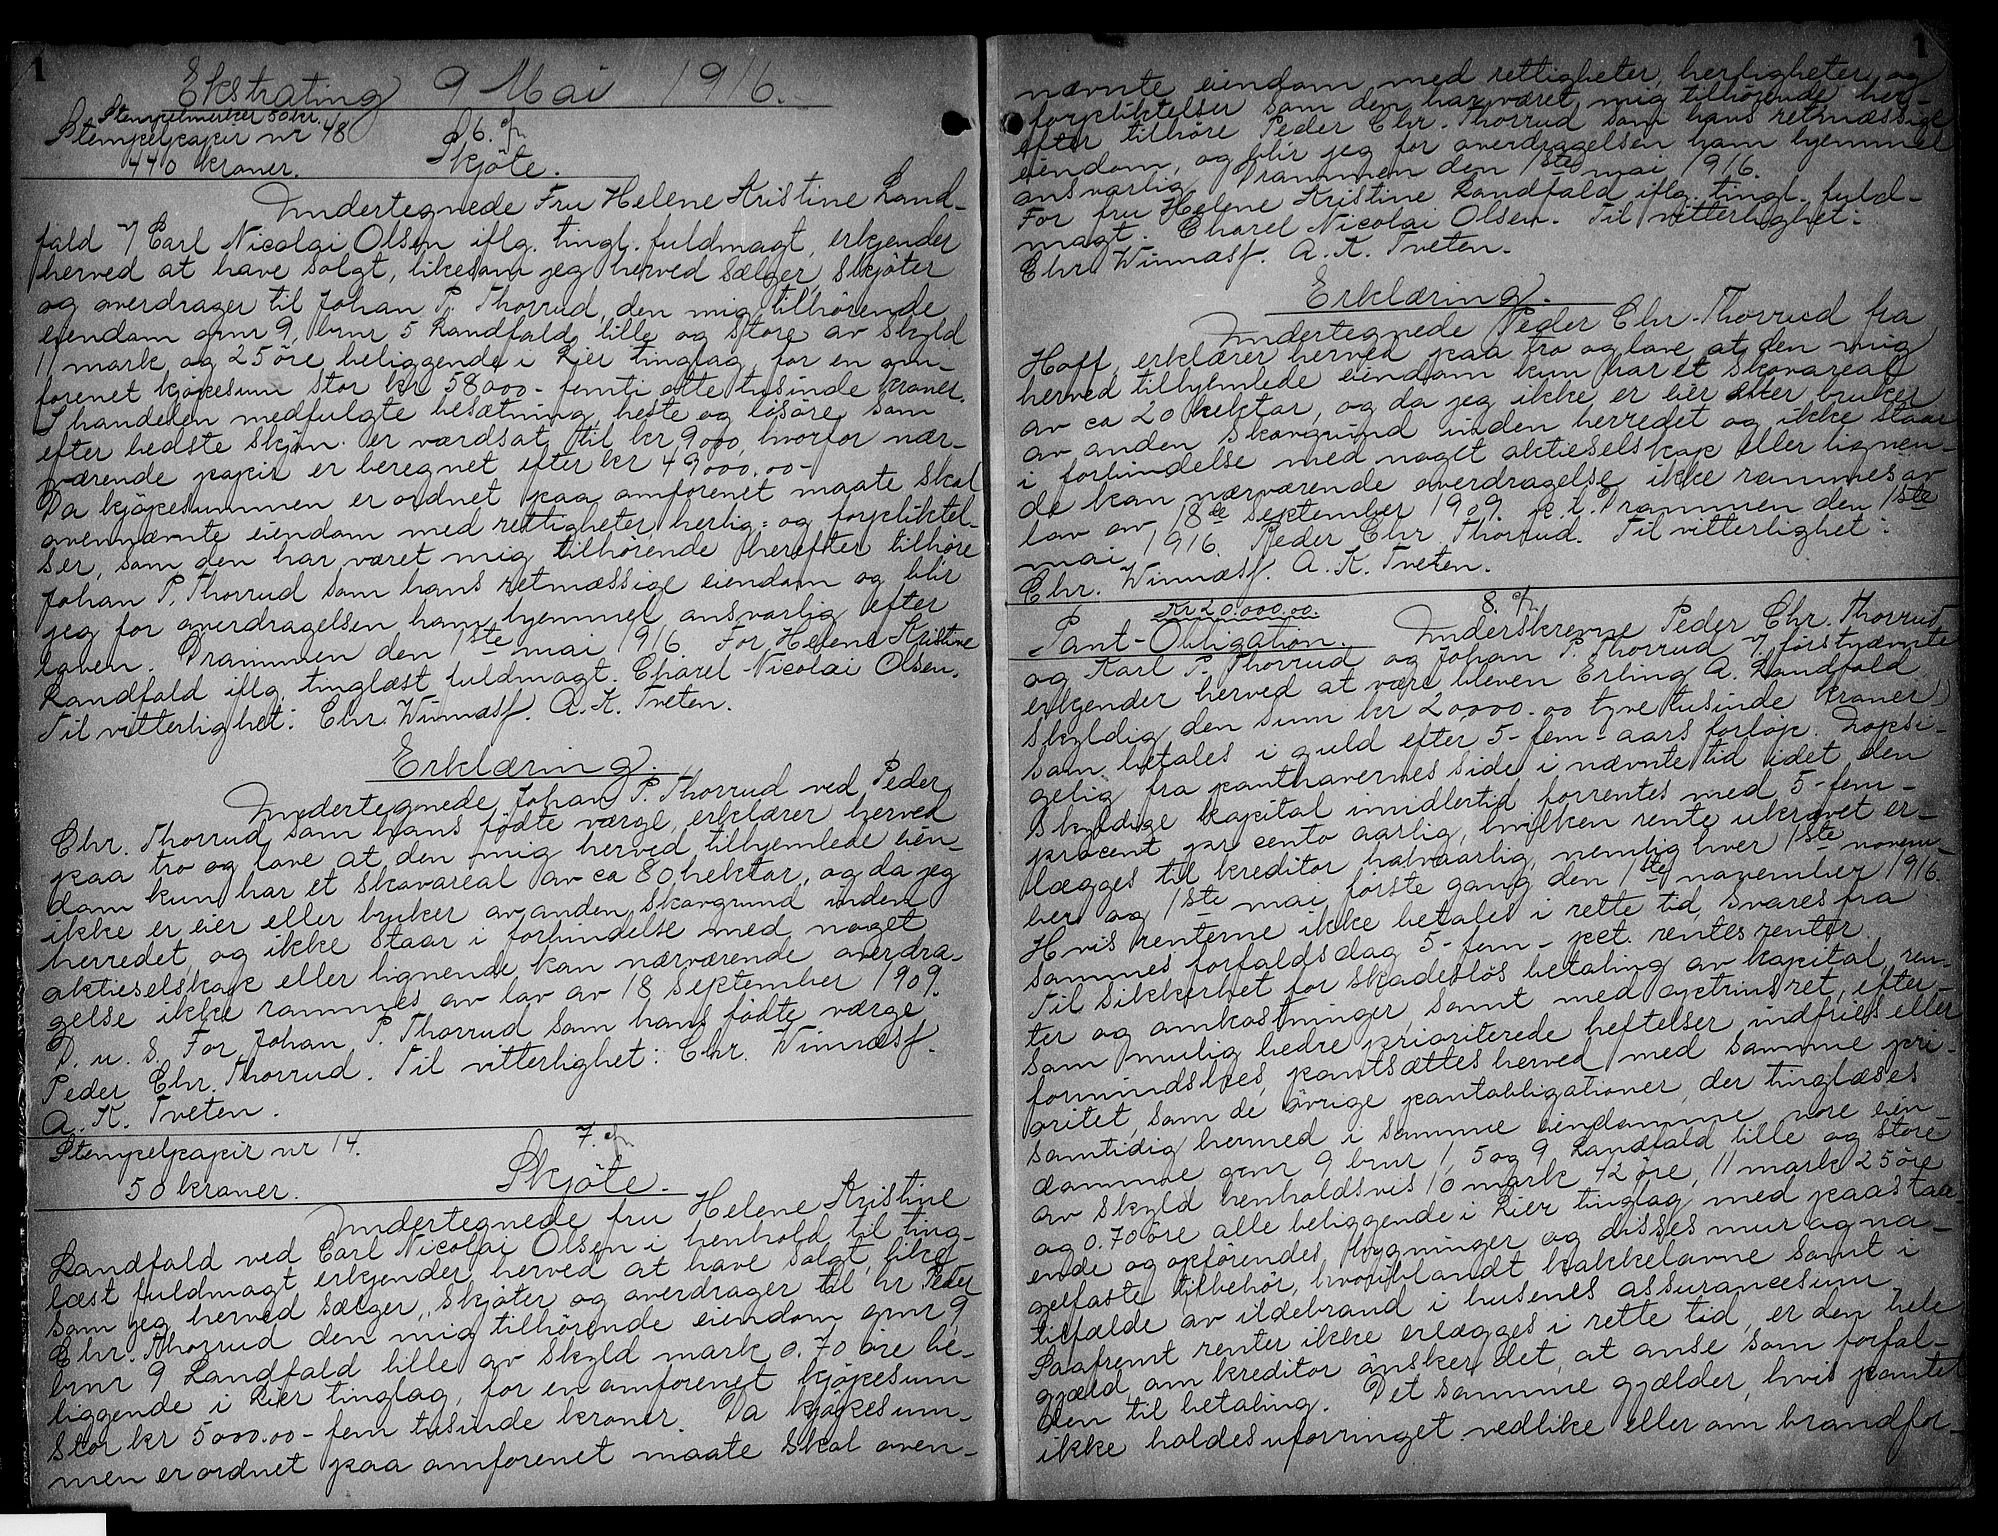 1
Ekstrating 9 Mai 1916.
Stempelmerker 50 kr.
Stempelpapir nr 48
440 kroner.
6.
Skjöte.
Undertegnede Fru Helene Kristine Land-
fald v/ Carl Nicolai Olsen iflg. tingl. fuldmagt, erkjender
herved at have solgt, likesom jeg herved sælger, skjöter
og overdrager til Johan P. Thorrud, den mig tilhörende
eiendom grnr 9, brnr 5 Landfald, lille og store av skyld
11 mark og 25 öre beliggende i Lier tinglag for en om-
forenet kjöpesum stor kr 58000 - femti otte tusinde kroner.
I handelen medfulgte besætning, heste og lösöre, som
efter bedste skjön er værdsat til kr 9000, hvorfor nær-
værende papir er beregnet efter kr 49000.00-
Da kjöpesummen er ordnet paa omforenet maate skal
ovennævnte eiendom med rettigheter, herlig= og forpliktel-
ser, som den har været mig tilhörende herefter tilhöre
Johan P. Thorrud som hans retmæssige eiendom og blir
jeg for overdragelsen ham hjemmel ansvarlig efter
loven. Drammen den 1ste mai 1916. For Helene Kristine
Landfald iflg. tinglæst fuldmagt. Charel Nicolai Olsen.
Til vitterlighet: Chr. Winnæss. A. K. Tveten.
Erklæring.
Undertegnede Johan P. Thorrud ved Peder
Chr. Thorrud som hans födte værge, erklærer herved
paa tro og love at den mig herved tilhjemlede eien-
dom kun har et skovareal av ca 80 hektar, og da jeg
ikke er eier eller bruker av anden skovgrund inden
herredet, og ikke staar i forbindelse med noget
aktieselskap eller lignende, kan nærværende overdra-
gelse ikke rammes av lov av 18 september 1909.
D. u. s. For Johan P. Thorrud som hans födte værge
Peder Chr. Thorrud. Til vitterlighet: Chr. Winnæss.
A. K. Tveten.
Stempelpapir nr 14.
50 kroner.
7.
Skjöte.
Undertegnede fru Helene Kristine
Landfald ved Carl Nicolai Olsen i henhold til ting-
læst fuldmagt erkjender herved at have solgt, like-
som jeg herved sælger, skjöter og overdrager til hr Peder
Chr. Thorrud den mig tilhörende eiendom grnr 9
brnr 9 Landfald lille av skyld mark 0.70 öre be-
liggende i Lier tinglag, for en omforenet kjöpesum
stor kr 5000.00 - fem tusinde kroner. Da kjöpesum-
men er ordnet paa omforenet maate skal oven-
1
nævnte eiendom med rettigheter, herligheter og
forpliktelser som den har været mig tilhörende her-
efter tilhöre Peder Chr. Thorrud som hans retmæssige
eiendom, og blir jeg for overdragelsen ham hjemmel
ansvarlig. Drammen den 1ste mai 1916.
For fru Helene Kristine Landfald iflg. tingl. fuld-
magt. Charel Nicolai Olsen. Til vitterlighet:
Chr. Winnæss. A. K. Tveten.
Erklæring.
Undertegnede Peder Chr. Thorrud fra
Hoff, erklærer herved paa tro og love at den mig
herved tilhjemlede eiendom kun har et skovareal
av ca 20 hektar, og da jeg ikke er eier eller bruker
av anden skovgrund inden herredet og ikke staar
i forbindelse med noget aktieselskap eller lignen-
de kan nærværende overdragelse ikke rammes av
lov av 18de september 1909. p. t. Drammen den 1ste
mai 1916. Peder Chr. Thorrud. Til vitterlighet:
Chr. Winnæss. A. K. Tveten.
Kr 20.000.00.
8.
Pant-Obligation. Underskrevne Peder Chr. Thorrud
og Karl P. Thorrud og Johan P. Thorrud v. förstnævnte
erkjender herved at være bleven Erling A. Landfald
skyldig den sum kr 20000.00 tyve tusinde kroner
som betales i guld efter 5 - fem - aars forlöp. Uopsi-
gelig fra panthavernes side i nævnte tid idet den
skyldige kapital imidlertid forrentes med 5 - fem -
procent pr cento aarlig, hvilken rente ukrævet er-
lægges til kreditor halvaarlig, nemlig hver 1ste novem-
ber og 1ste mai, förste gang den 1ste november 1916.
Hvis renterne ikke betales i rette tid, svares fra
sammes forfaldsdag 5 - fem - pct. rentesrenter.
Til sikkerhet for skadeslös betaling av kapital, ren-
ter og omkostninger, samt med optrinsret, efter-
som mulig bedre prioriterede heftelser indfries eller
formindskes, pantsættes herved med samme pri-
oritet, som de övrige pantobligationer, der tinglæses
samtidig hermed i samme eiendomme, vore eien-
domme grnr 9 brnr 1, 5 og 9 Landfald lille og store
av skyld henholdsvis 10 mark 42 öre, 11 mark 25 öre
og 0.70 öre alle beliggende i Lier tinglag med paastaa-
ende og opförendes bygninger og disses mur og na-
gelfaste tilbehör, hvoriblandt kakkelovne samt i
tilfælde av ildebrand i husenes assurancesum.
Saafremt renter ikke erlægges i rette tid, er den hele
gjæld, om kreditor önsker det, at anse som forfal-
den til betaling. Det samme gjælder, hvis pantet
ikke holdes uforringet vedlike eller om brandfor-